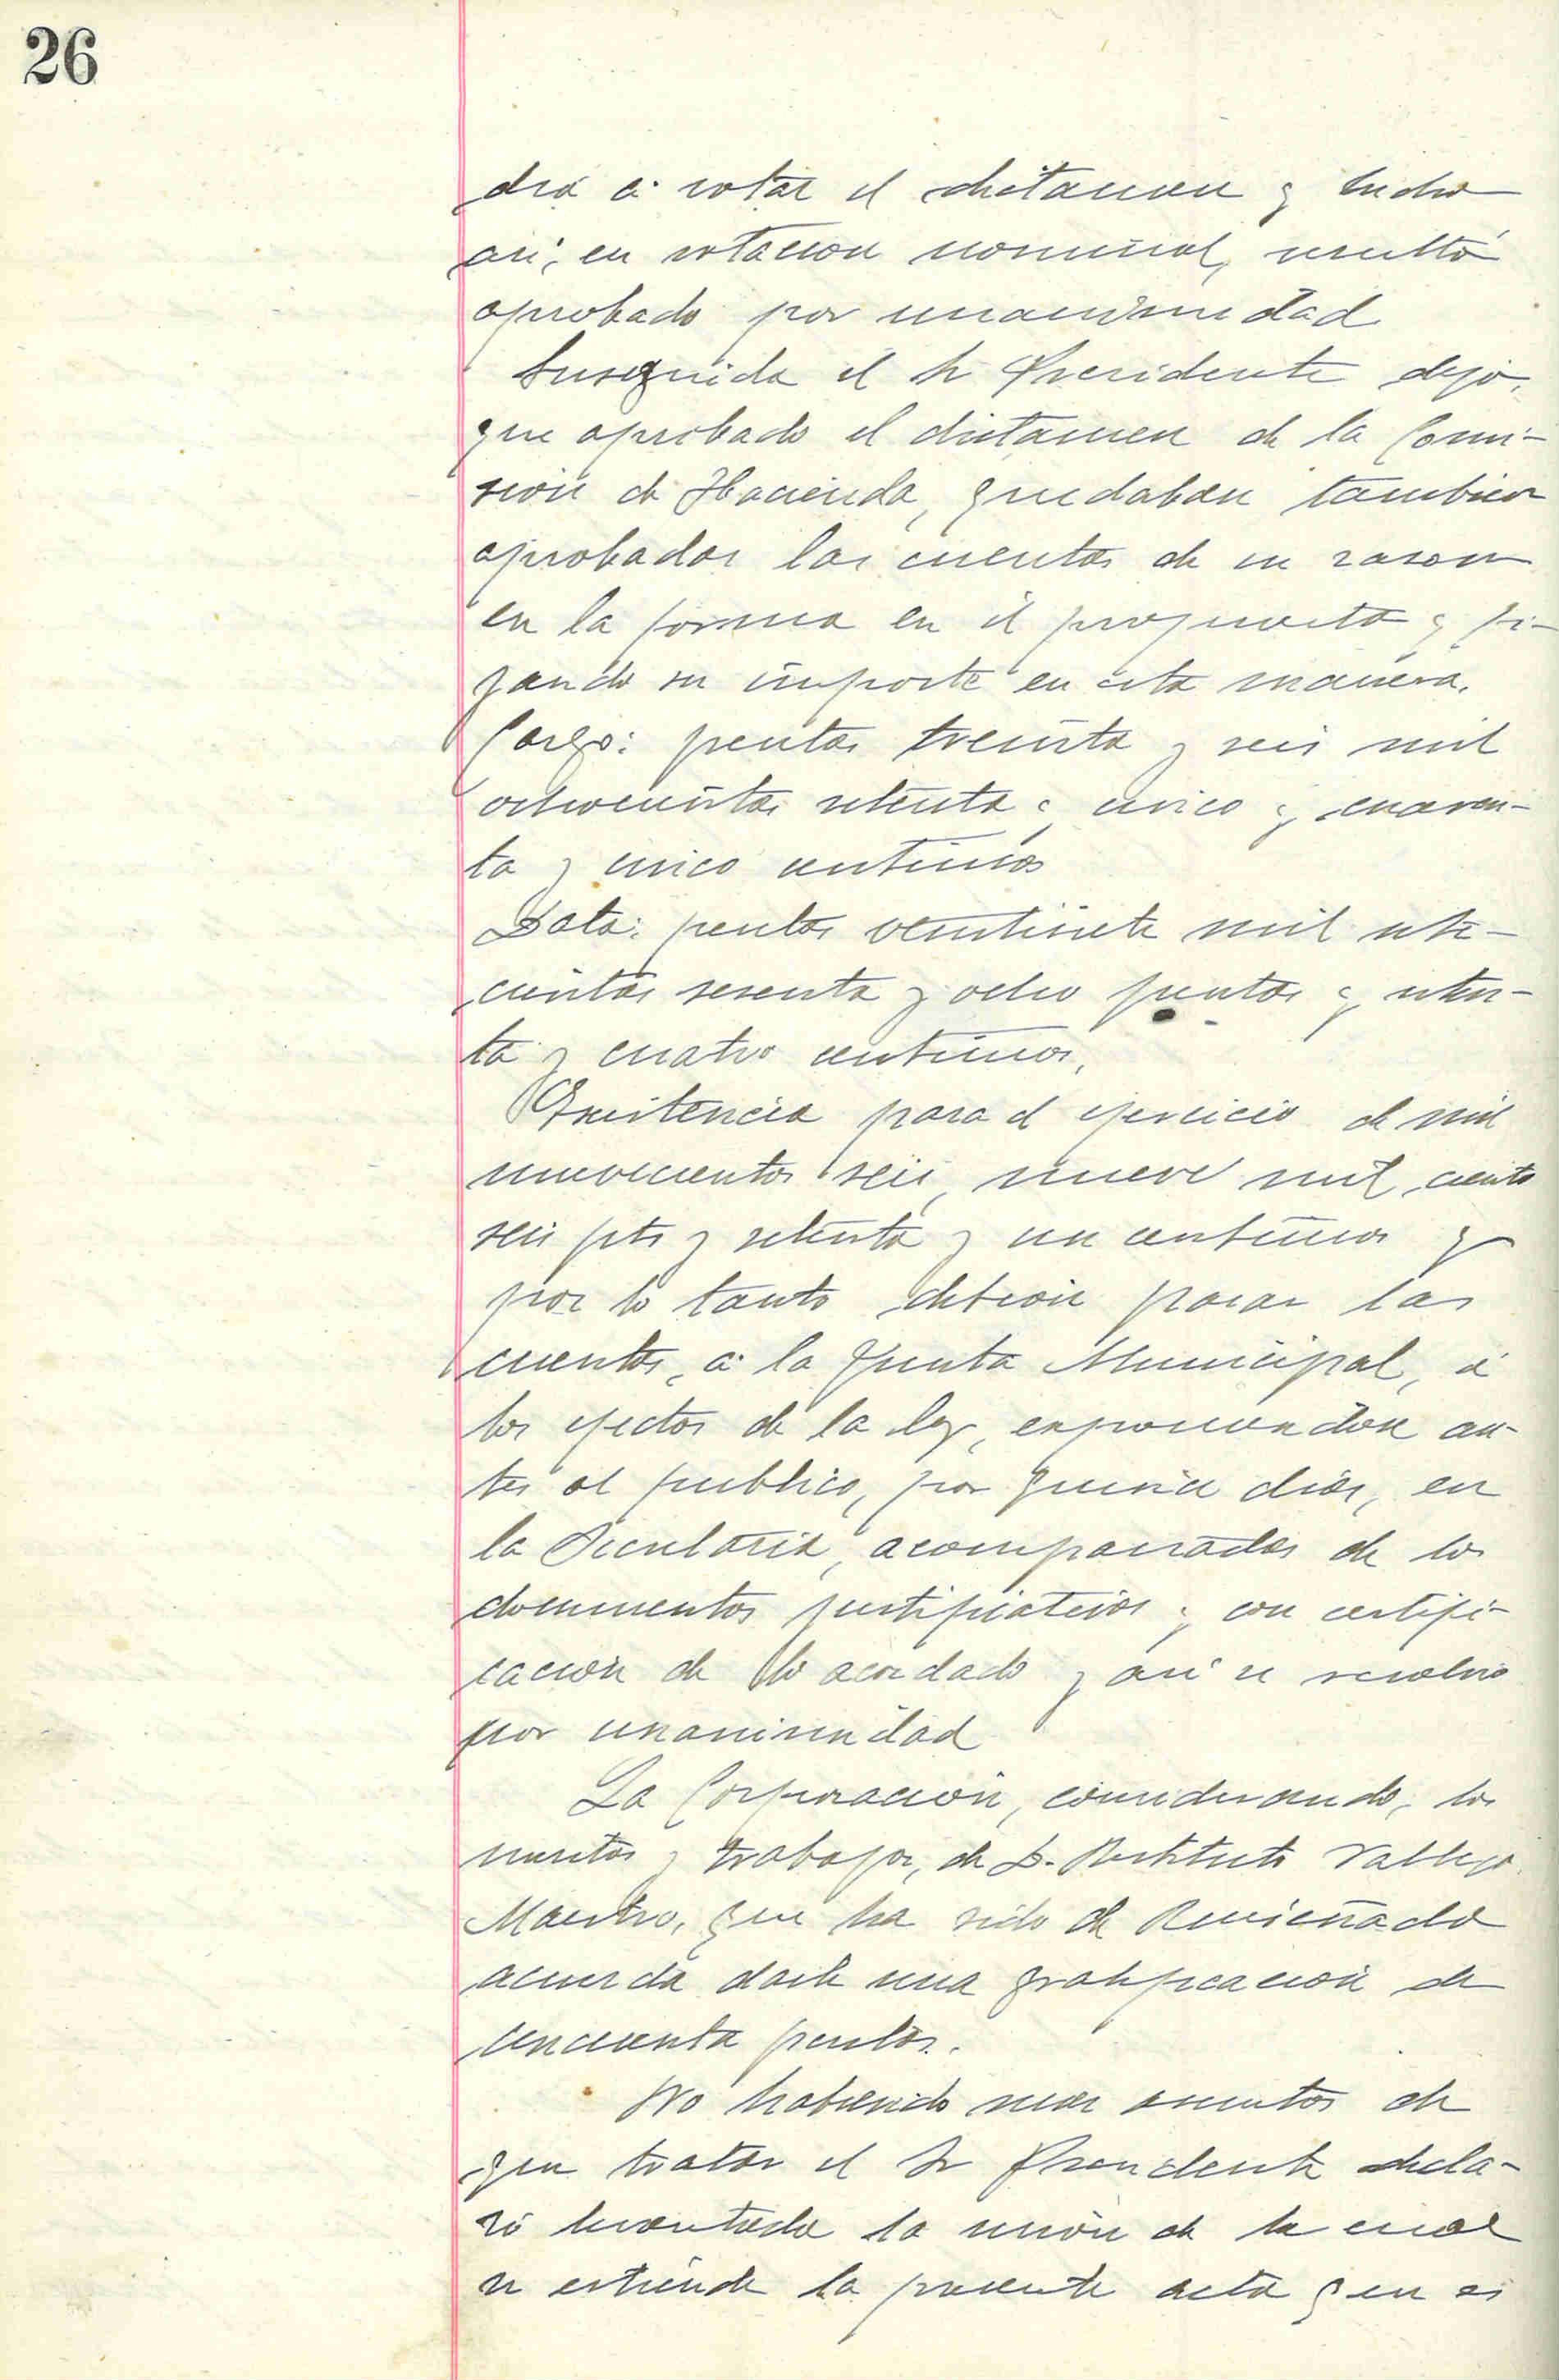 26
drá á votar el dictamen y hecho
así, en votacion nominal, resultó
aprobado por unanimidad
Enseguida el Sr Presidente dijo,
que aprobado el dictamen de la Comi-
sión de Hacienda, quedaban tambien
aprobadas las cuentas de su razon
en la forma en él propuesta y fi-
jando su importe en esta manera.
Cargo: pesetas treinta y seis mil
ochocientas setenta y cinco y cuaren-
ta y cinco centimos
Data: pesetas veintisiete mil sete-
cientas sesenta y ocho pesetas y seten-
ta y cuatro centimos.
Existencia para el ejercicio de mil
novecientos seis, nueve mil, ciento
seis pts y setenta y un centimos y
por lo tanto debian pasar las
cuentas, á la Junta Municipal, á
los efectos de la ley, exponiendose an-
tes al publico, por quince dias, en
la Secretaria, acompañadas de los
documentos justificativos y con certifi-
cación de lo acordado y así se resolvio
por unanimidad
La Corporación, considerando, los
meritos y trabajos, de D. Restituto Vallejo
Maestro, que ha sido de
acuerda darle una gratificación de
cincuenta pesetas.
No habiendo mas asuntos de
que tratar el Sr Presidente decla-
ró levantada la sesión de la cual
se estiende la presente acta que es